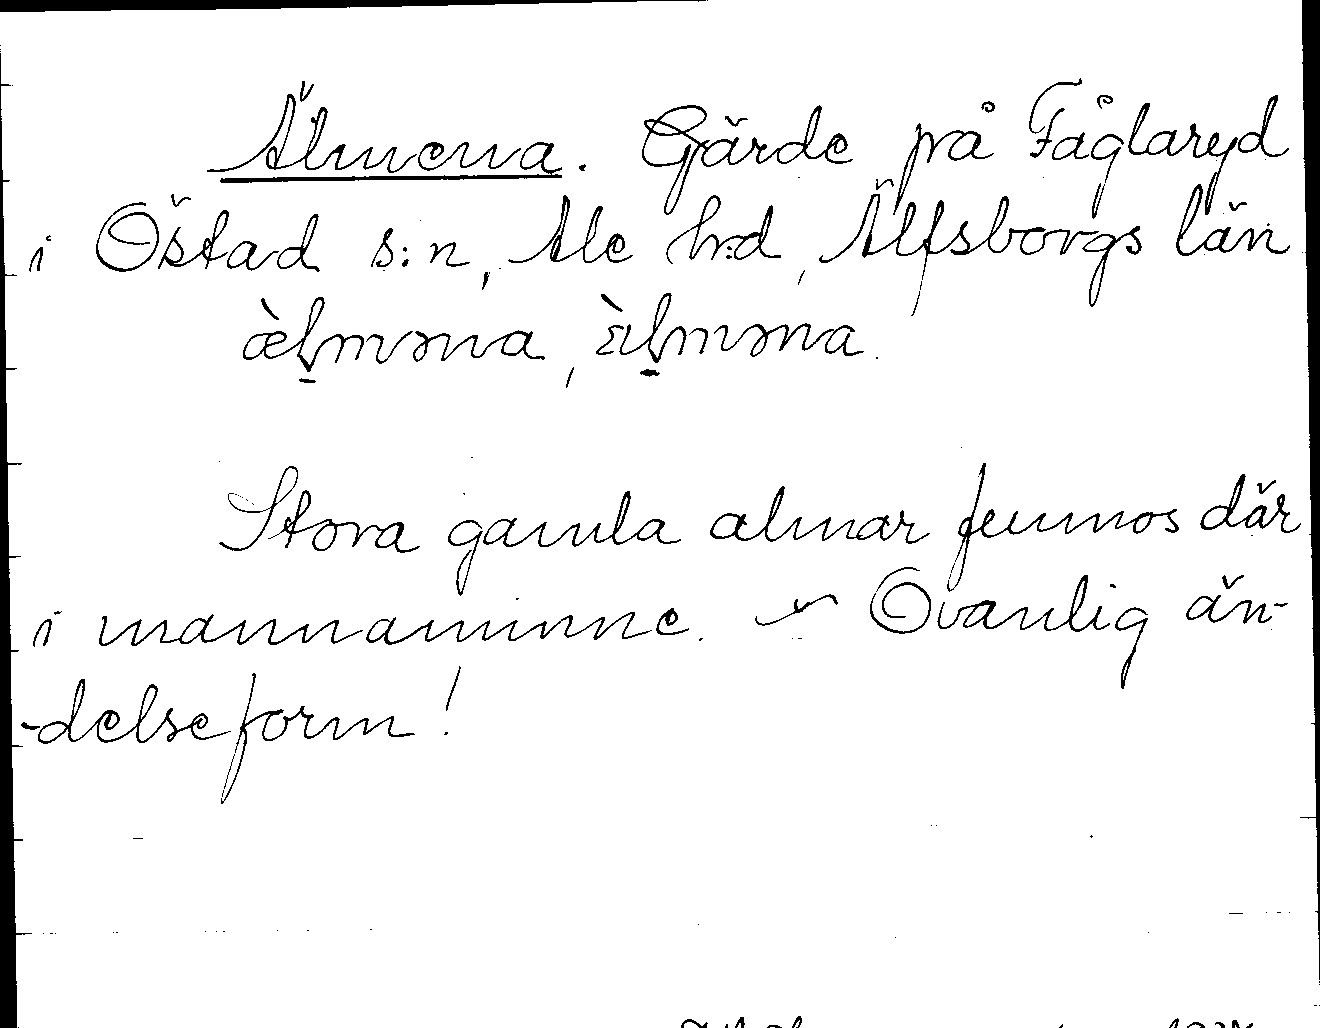 Älmena. Gärde på Fåglaryd
i Östad s:n, Ale h:d, Älfsborgs län
æ̀lməna, ὲlməna.
Stora gamla almar funnos där
i mannaminne. ~ Ovanlig än-
-delseform!